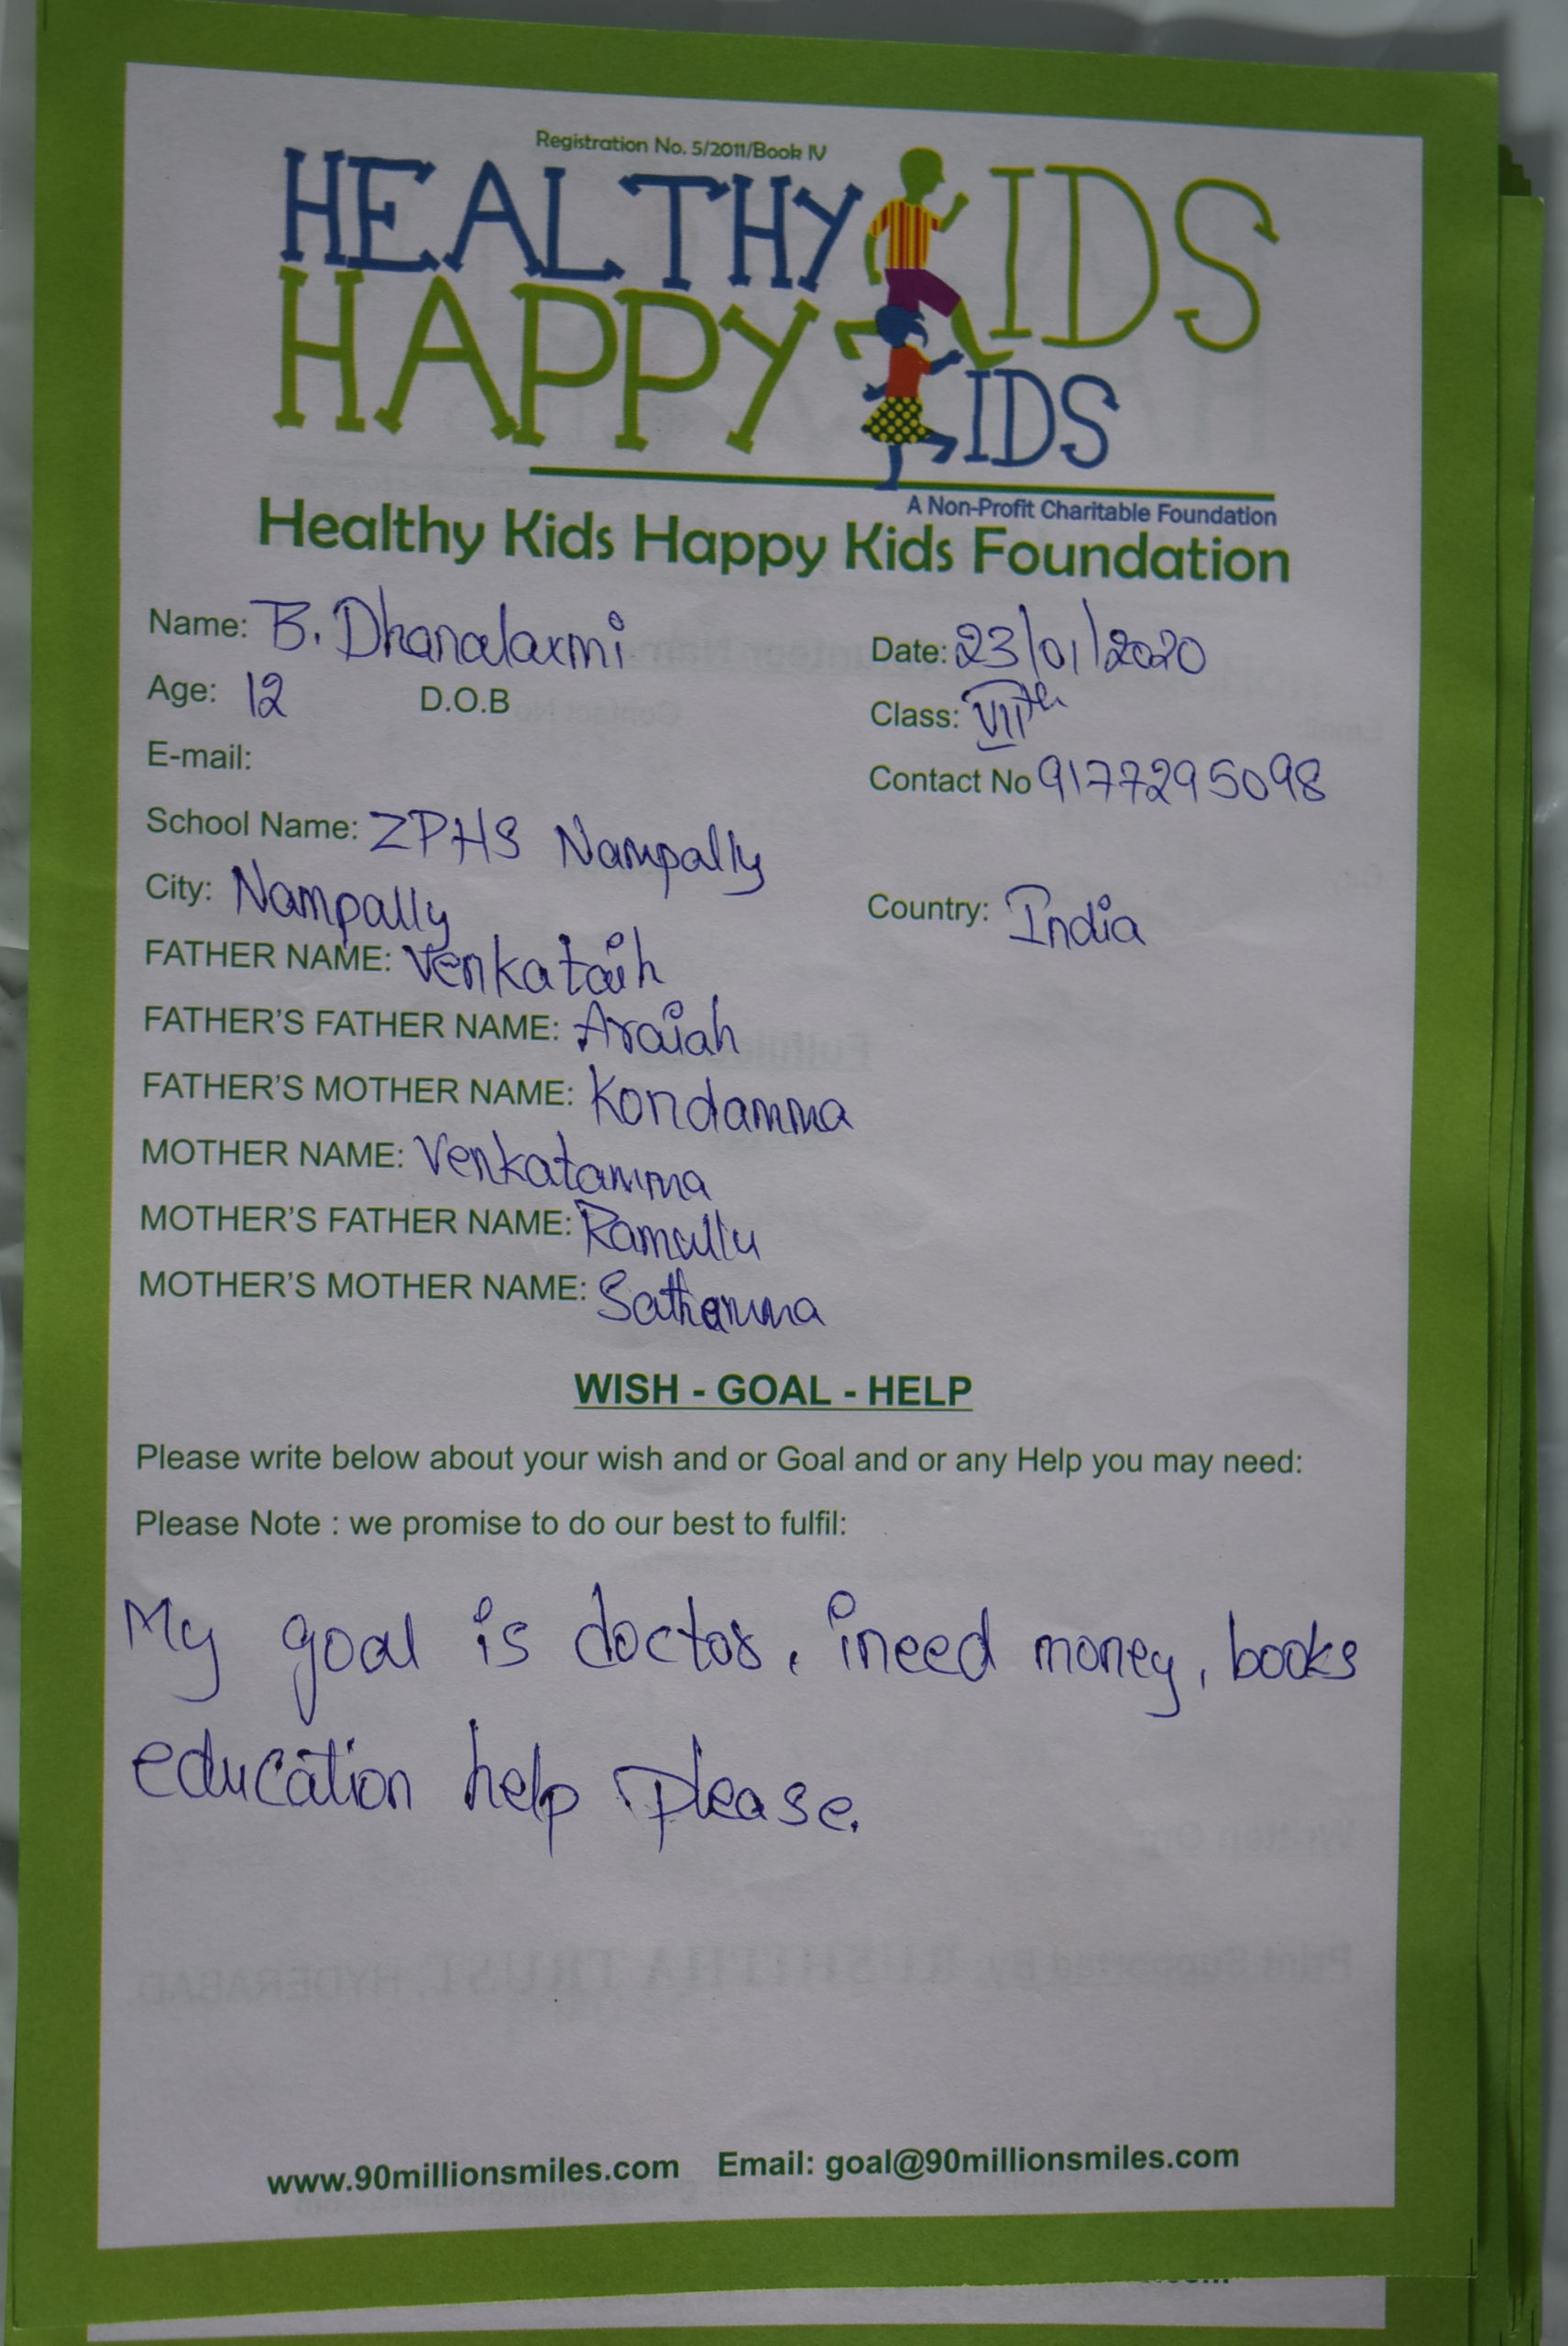 Registration No. 5/2011/Book IV
HEALTHY KIDS
HAPPY KIDS
A Non-Profit Charitable Foundation
Healthy Kids Happy Kids Foundation
Name: B. Dhanalaxmi Date: 23/01/2020
Age: 12 D.O.B Class: VIIth
E-mail: Contact No 9177295098
School Name: ZPHS Nampally
City: Nampally Country: India
FATHER NAME: Venkataih
FATHER'S FATHER NAME: Araiah
FATHER'S MOTHER NAME: Kondamma
MOTHER NAME: Venkatamma
MOTHER'S FATHER NAME: Ramullu
MOTHER'S MOTHER NAME: Sathamma
WISH - GOAL - HELP
Please write below about your wish and or Goal and or any Help you may need:
Please Note : we promise to do our best to fulfil:
My goal is doctor. ineed money, books
education help please.
www.90millionsmiles.com Email: goal@90millionsmiles.com